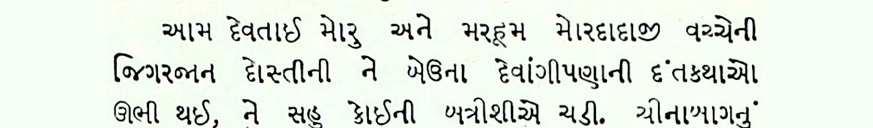 આમ દેવતાઈ મોરુ અને મરહૂમ મોરદાદાજી વચ્ચેની
જિગરજાન દોસ્તીની ને બેઉના દેવાંગીપણાની દંતકથાઓ
ઊભી થઈ, ને સહુ કોઈની બત્રીશીએ ચડી. ચીનાબાગનું